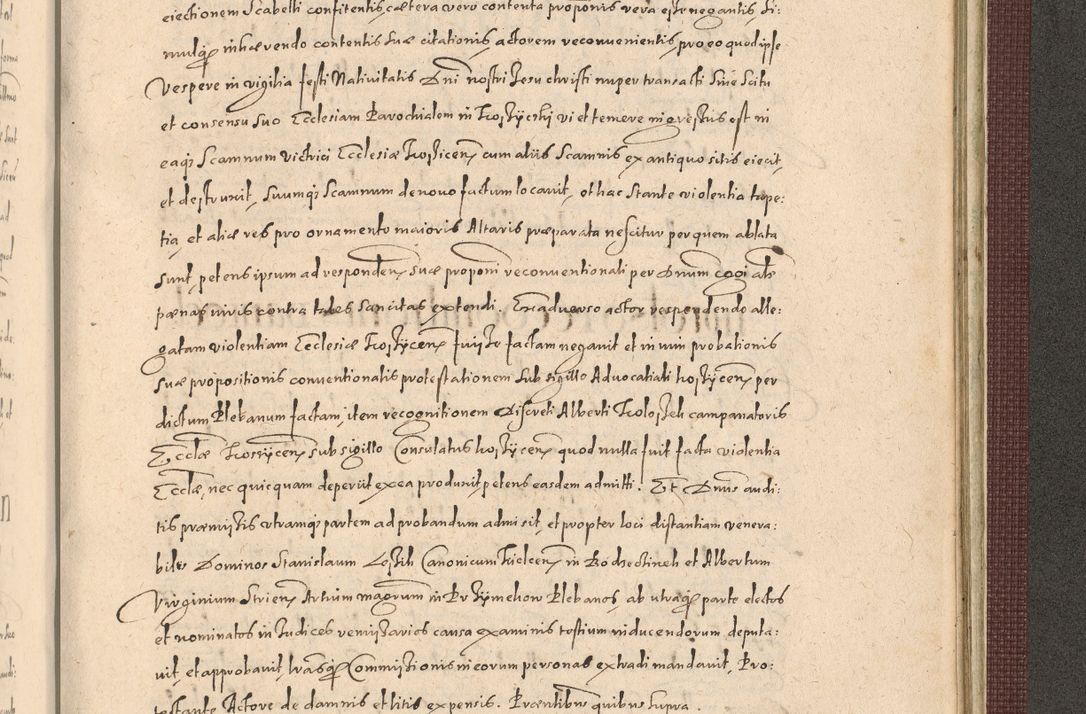 eiectionem Scabelli confitentis, cætera vero contenta proponis vera esse negantis, Si:
mulq; inhærendo contentis suæ citationis, actorem reconvenientis, pro eo quod ipse
Vespere in vigilia festi Nativitatis Dni nostri Jesu christi nuper transacti Sine Scitu
et consensu suo Ecclesiam Parochialem in vi et temere ingressus est in
eaq; Scamnum victrici Ecclesiæ cum aliis Scamnis ex antiquo sitis eiecit,
et destruxit, Suumq; Scamnum de novo factum locavit, et hac stante violentia tape:
tia, et aliæ res pro ornamento maioris Altaris præparata nescitur per quem ablata
sunt, petens ipsum ad responden suæ proponi reconventionali per Dnum cogi ale
pænas viris contra tales sancitas extendi. Ex adverso actor respondendo alle:
gatam violentiam Ecclesiæ fuisse factam negavit et in vim probationis
suæ propositionis conventionalis protestationem sub sigillo Advocatiali per
dictum Plebanum factam, item recognitionem Discreti Alberti campanatoris
Ecclæ sub sigillo Consulatus quod nulla fuit facta violentia
Ecclæ, nec quicquam deperiit ex ea produxit, petens easdem admitti. Et Dnus audi:
tis præmissis utramq; partem ad probandum admisit, et propter loci distantiam venera:
biles Dominos Stanislaum Canonicum Kielcen in et Albertum
Virginium Artium magrum in Plebanos, ab utraq; parte electos
et nominatos in Judices remissarios causa examinis testium inducendorum deputa:
vit, et approbavit, lrasq; Commissionis in eorum personas extradi mandavit, Pro:
testante Actore de damnis et litis expensis. Præntibus quibus supra.